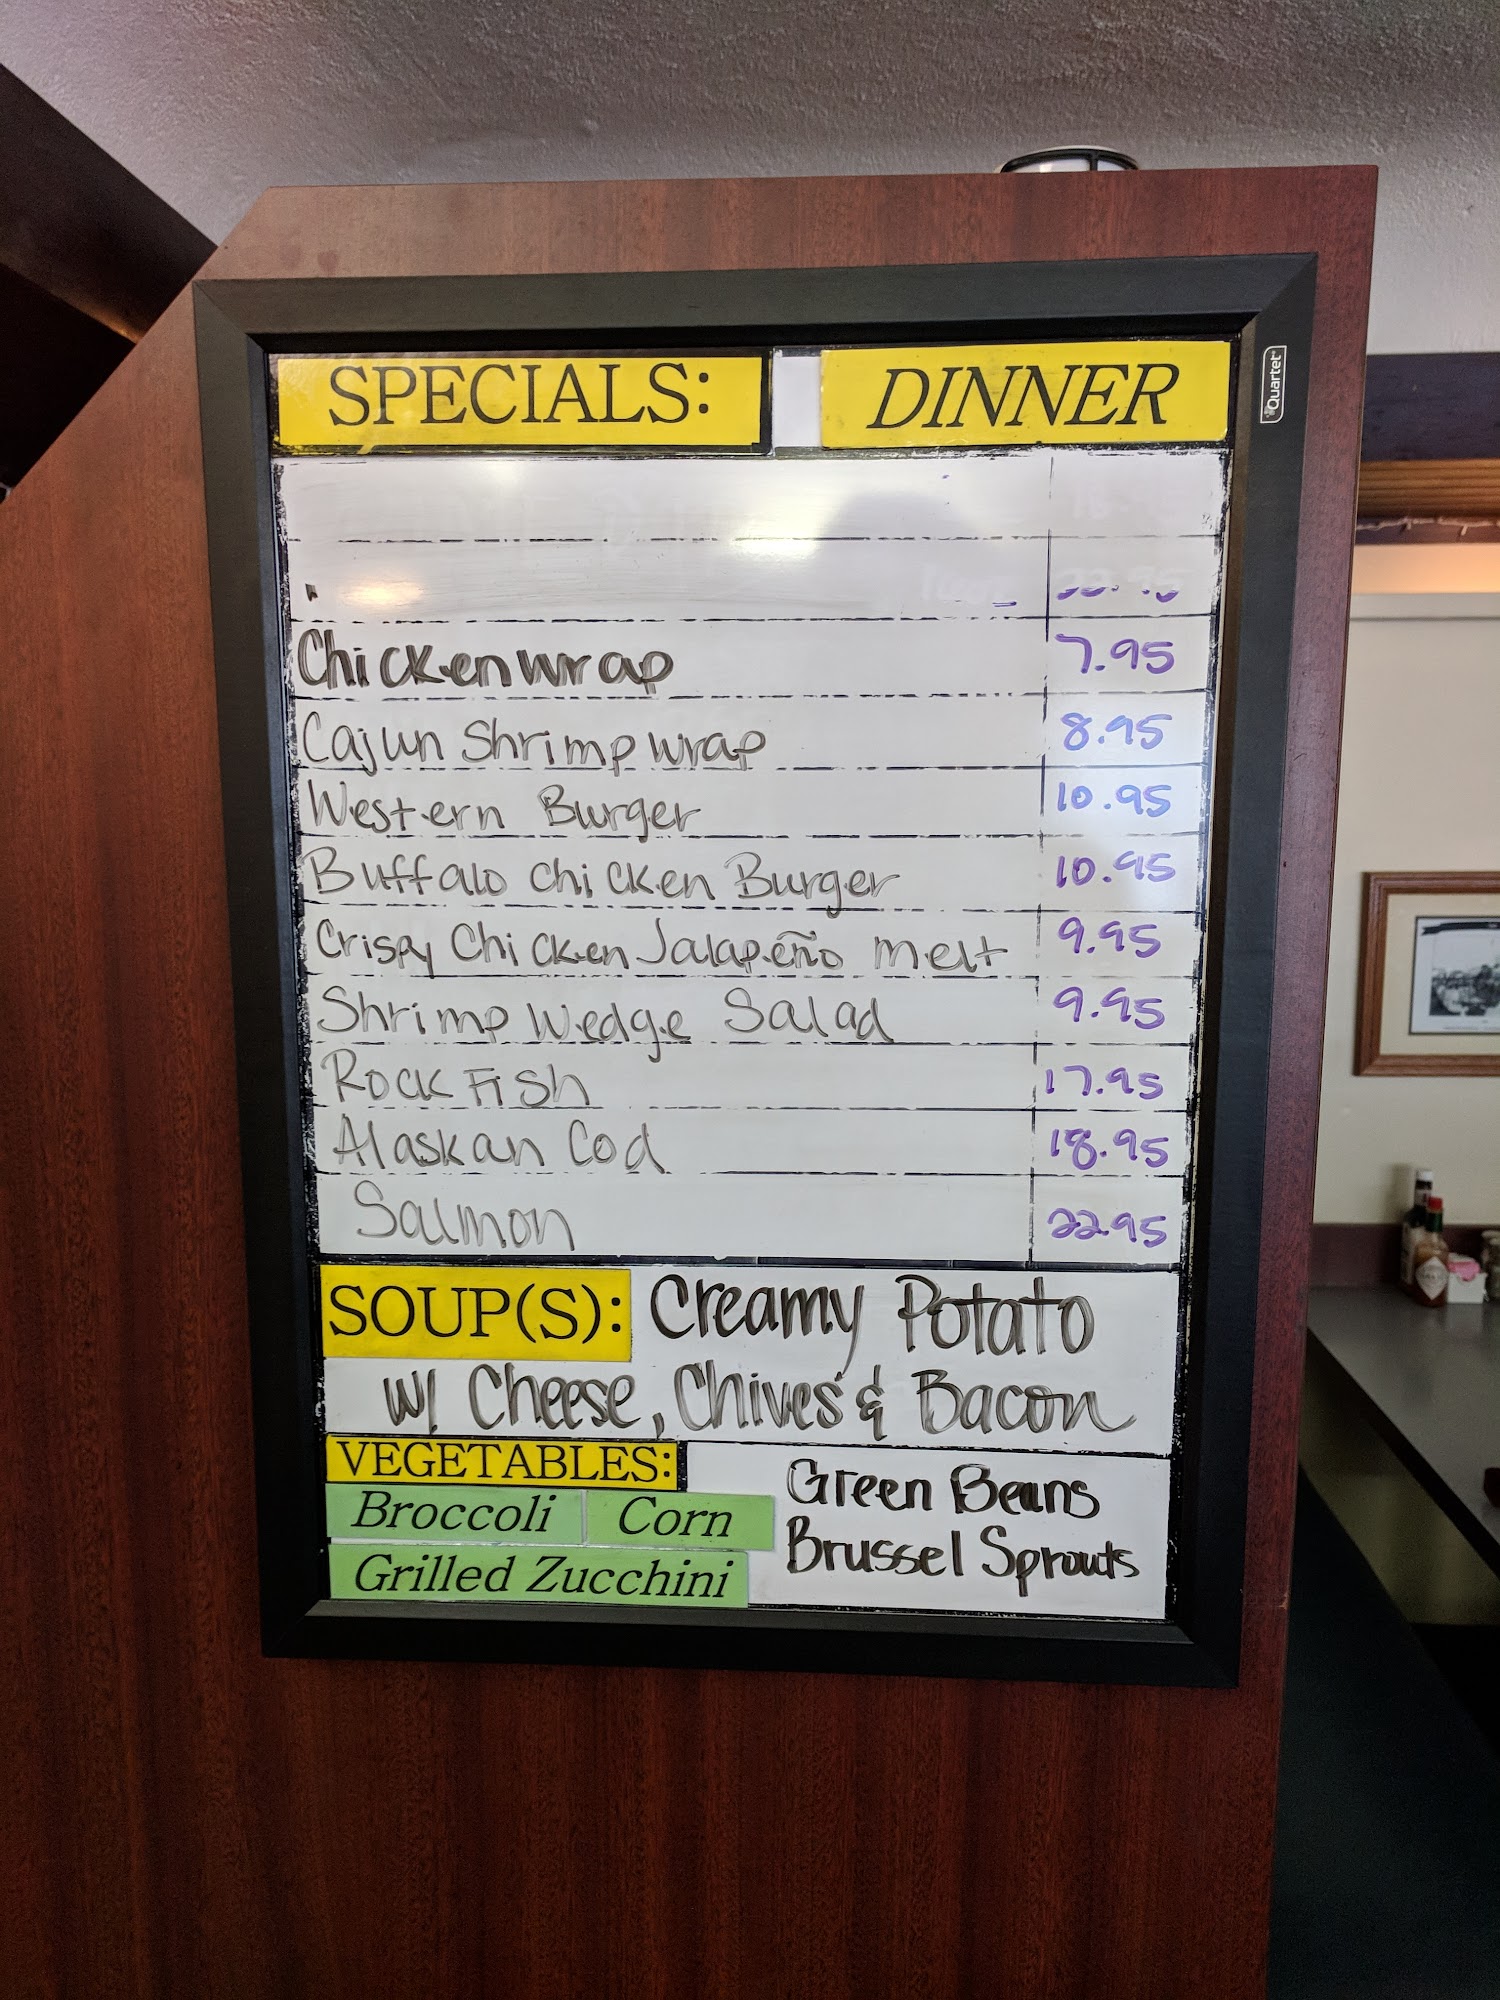 SPECIALS: DINNER
Quartet
Chicken wrap 7.95
Cajun Shrimp wrap 8.95
Western Burger 10.95
Buffalo Chicken Burger 10.95
Crispy Chicken Jalapeño melt 9.95
Shrimp Wedge Salad 9.95
Rock Fish 17.95
Alaskan Cod 18.95
Salmon 22.95
SOUP(S): Creamy Potato
w/ Cheese, Chives & Bacon
VEGETABLES: Green Beans
Broccoli Corn Brussel Sprouts
Grilled Zucchini